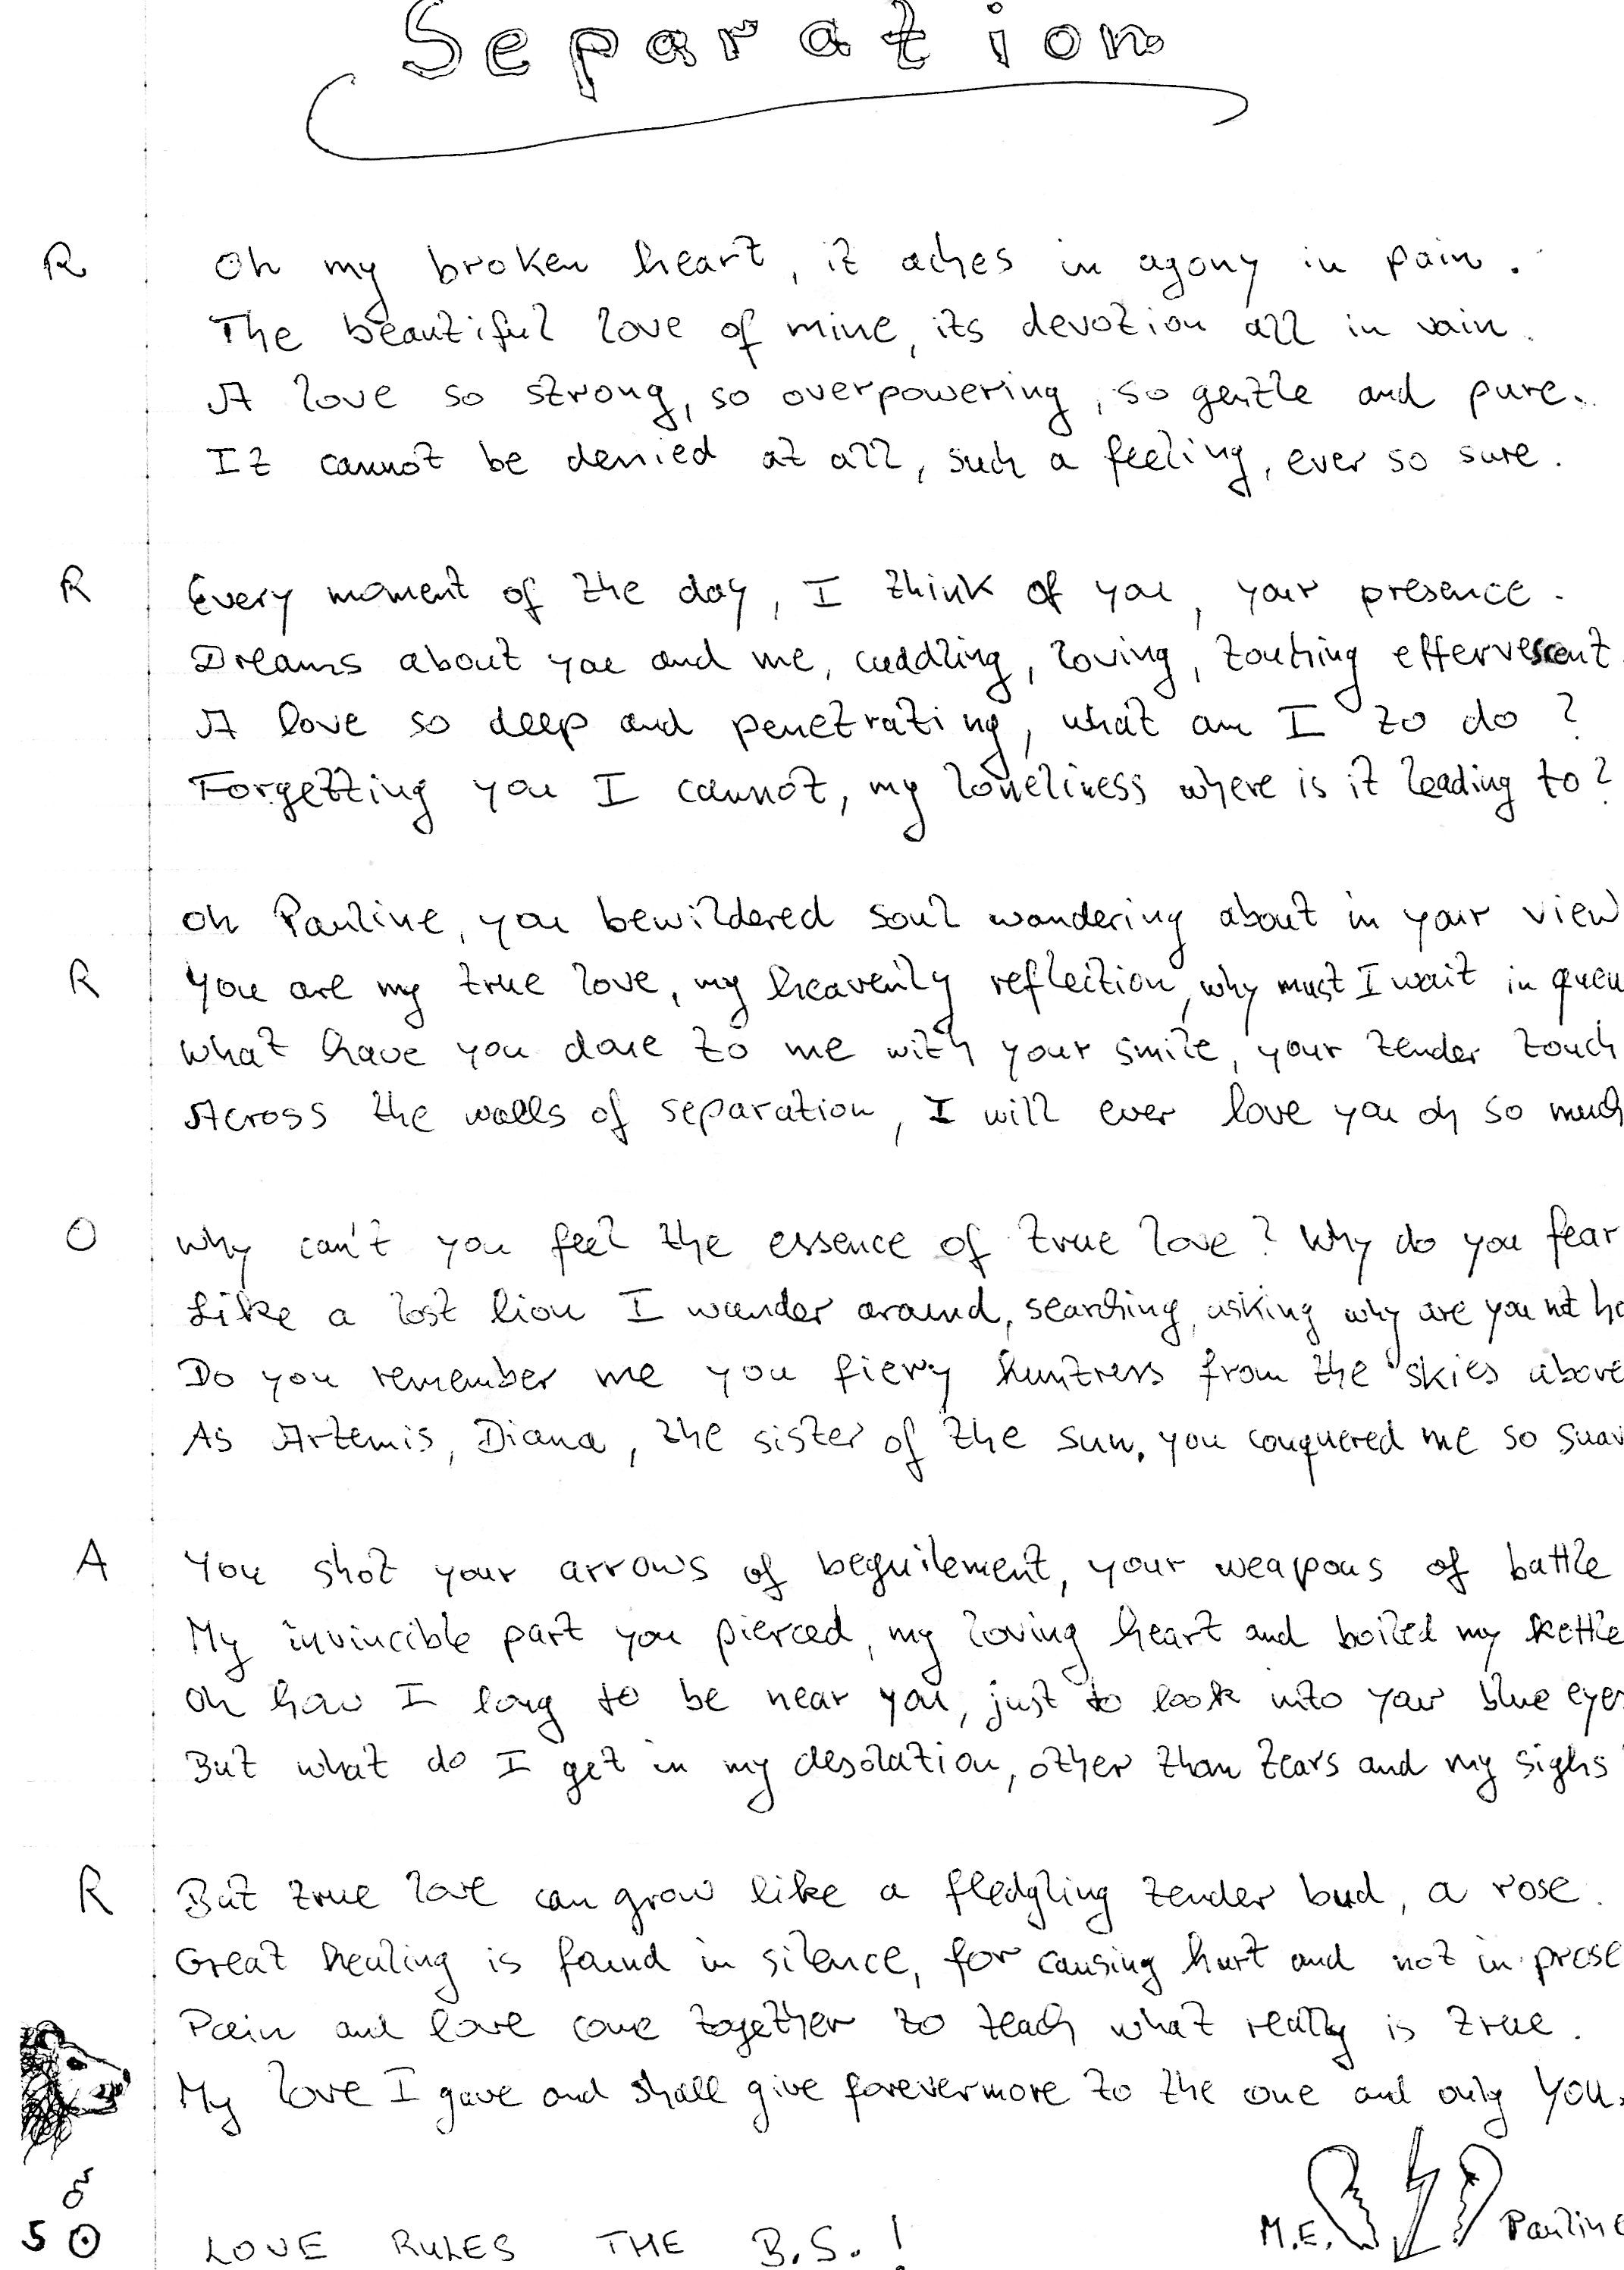 Separation
R Oh my broken heart, it aches in agony in pain.
The beautiful love of mine, its devotion all in vain.
A love so strong, so overpowering, so gentle and pure.
It cannot be denied at all, such a feeling, ever so sure.
R Every moment of the day, I think of you, your presence.
Dreams about you and me, cuddling, loving, touching effervescent
A love so deep and penetrating, what am I to do?
Forgetting you I cannot, my loneliness where is it leading to?
Oh Pauline, you bewildered soul wandering about in your view
R You are my true love, my heavenly reflection, why must I wait in queu
What have you done to me with your smile, your tender touch
Across the walls of separation, I will ever love you oh so much
O Why can't you feel the essence of true love? Why do you fear
Like a lost lion I wander around, searching, asking why are you not he
Do you remember me you fiery huntress from the skies above
As Artemis, Diana, the sister of the sun, you conquered me so suav
A You shot your arrows of beguilement, your weapons of battle
My invincible part you pierced, my loving heart and boiled my kettle
Oh how I long to be near you, just to look into your blue eyes
But what do I get in my desolation, other than tears and my sighs
R But true love can grow like a fledgling tender bud, a rose.
Great healing is found in silence, for causing hurt and not in prose
Pain and love come together to teach what really is true.
My love I gave and shall give forevermore to the one and only you.
5 ⊙ LOVE RULES THE B.S.! M.E. Pauline